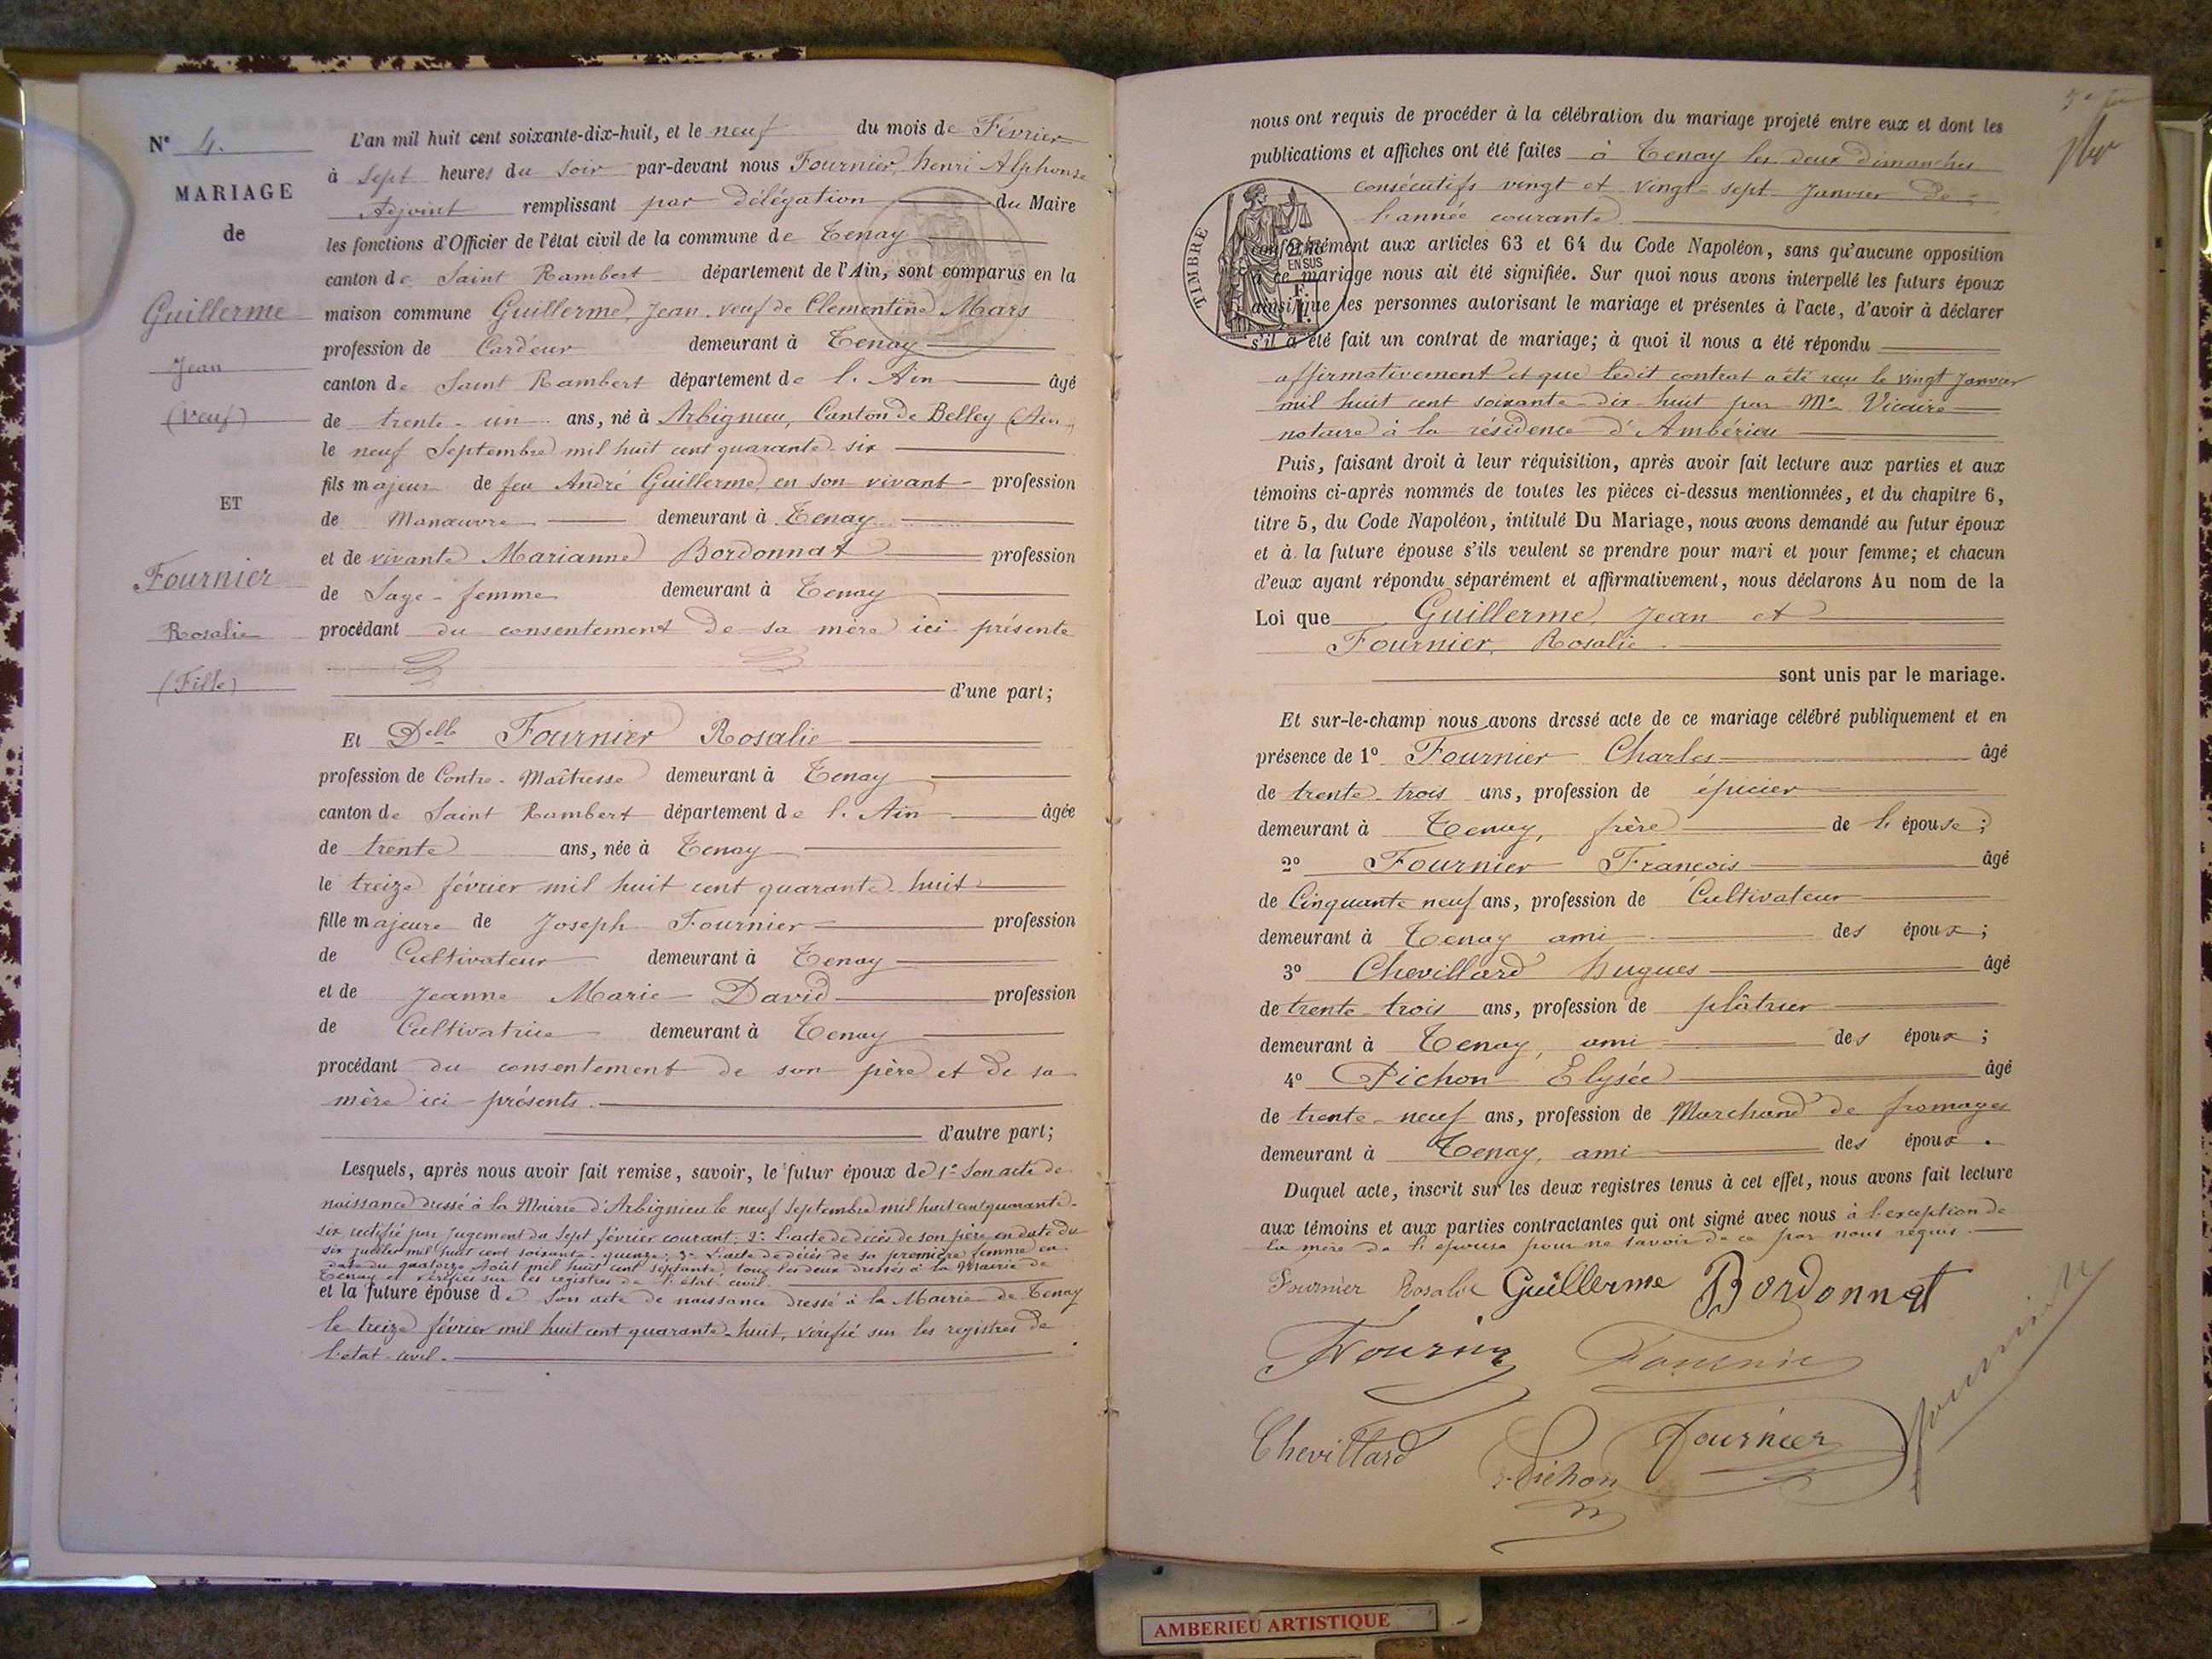 N° 4.
MARIAGE
de
Guillerme
Jean
(Veuf)
ET
Fournier
Rosalie
(Fille)
L'an mil huit cent soixante-dix-huit, et le neuf du mois de Février
à Sept heures du soir par-devant nous Fournier, henri Alphonse
Adjoint remplissant par délégation du Maire
les fonctions d'Officier de l'état civil de la commune de Tenay
canton de Saint Rambert département de l'Ain, sont comparus en la
maison commune Guillerme, Jean, veuf de Clementine Mars
profession de Cardeur demeurant à Tenay
canton de Saint Rambert département de l'Ain âgé
de trente-un ans, né à Arbignieu, Canton de Belley (Ain)
le neuf Septembre mil huit cent quarante-six
fils majeur de feu André Guillerme, en son vivant profession
de Manœuvre demeurant à Tenay
et de vivante Marianne Bordonnat profession
de Sage-femme demeurant à Tenay
procédant du consentement de sa mère ici présente
d'une part;
Et Delle Fournier Rosalie
profession de Contre-Maîtresse demeurant à Tenay
canton de Saint Rambert département de l'Ain âgée
de trente ans, née à Tenay
le treize février mil huit cent quarante-huit
fille majeure de Joseph Fournier profession
de Cultivateur demeurant à Tenay
et de Jeanne Marie David profession
de Cultivatrice demeurant à Tenay
procédant du consentement de son père et de sa
mère ici présents.
d'autre part;
Lesquels, après nous avoir fait remise, savoir, le futur époux de 1° Son acte de
naissance dressé à la Mairie d'Arbignieu le neuf Septembre mil huit cent quarante-
six rectifié par jugement du Sept février courant; 2° L'acte de décès de son père en date du
six juillet mil huit cent soixante-quinze; 3° L'acte de décès de sa première femme en
date du quatorze Août mil huit cent septante, tous les deux dressés à la Mairie de
Tenay et vérifiés sur les registres de l'état civil.
et la future épouse de Son acte de naissance dressé à la Mairie de Tenay
le treize février mil huit cent quarante-huit, vérifié sur les registres de
l'état-civil.
nous ont requis de procéder à la célébration du mariage projeté entre eux et dont les
publications et affiches ont été faites à Tenay les deux dimanches
consécutifs vingt et vingt-sept Janvier de
l'année courante
TIMBRE
EN SUS
conformément aux articles 63 et 64 du Code Napoléon, sans qu'aucune opposition
à ce mariage nous ait été signifiée. Sur quoi nous avons interpellé les futurs époux
ainsi que les personnes autorisant le mariage et présentes à l'acte, d'avoir à déclarer
s'il a été fait un contrat de mariage; à quoi il nous a été répondu
affirmativement et que ledit contrat a été reçu le vingt Janvier
mil huit cent soixante-dix-huit par Me Vicaire
notaire à la résidence d'Ambérieu
Puis, faisant droit à leur réquisition, après avoir fait lecture aux parties et aux
témoins ci-après nommés de toutes les pièces ci-dessus mentionnées, et du chapitre 6,
titre 5, du Code Napoléon, intitulé Du Mariage, nous avons demandé au futur époux
et à la future épouse s'ils veulent se prendre pour mari et pour femme; et chacun
d'eux ayant répondu séparément et affirmativement, nous déclarons Au nom de la
Loi que Guillerme, Jean et
Fournier, Rosalie.
sont unis par le mariage.
Et sur-le-champ nous avons dressé acte de ce mariage célébré publiquement et en
présence de 1° Fournier Charles âgé
de trente-trois ans, profession de épicier
demeurant à Tenay, frère de l'épouse;
2° Fournier François âgé
de Cinquante neuf ans, profession de Cultivateur
demeurant à Tenay ami des époux;
3° Chevillard hugues âgé
de trente-trois ans, profession de plâtrier
demeurant à Tenay, ami des époux;
4° Pichon Elysée âgé
de trente-neuf ans, profession de Marchand de fromages
demeurant à Tenay, ami des époux.
Duquel acte, inscrit sur les deux registres tenus à cet effet, nous avons fait lecture
aux témoins et aux parties contractantes qui ont signé avec nous à l'exception de
la mère de l'épouse pour ne savoir de ce par nous requis.
Fournier Rosalie Guillerme Bordonnat
Fournier Fournier
Chevillard Pichon Fournier
fournier
AMBERIEU ARTISTIQUE